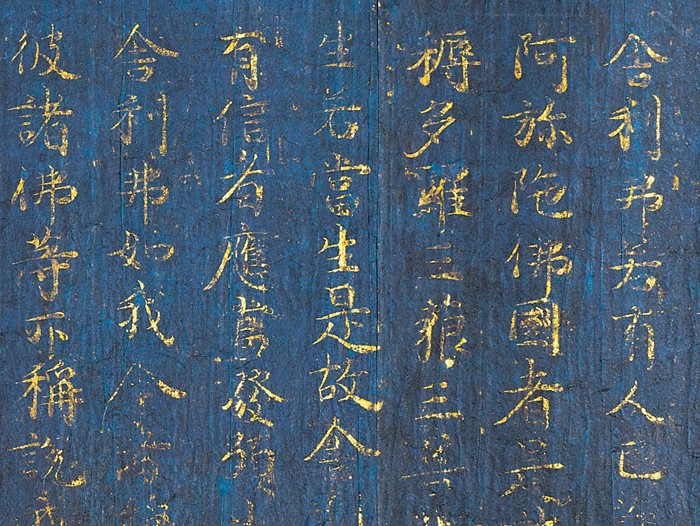 舍利弗若有人已
阿弥陁佛國者是
耨多羅三藐三菩
生若當生是故舍
有信者應當發願
舍利弗如我今
彼諸佛等亦稱說我